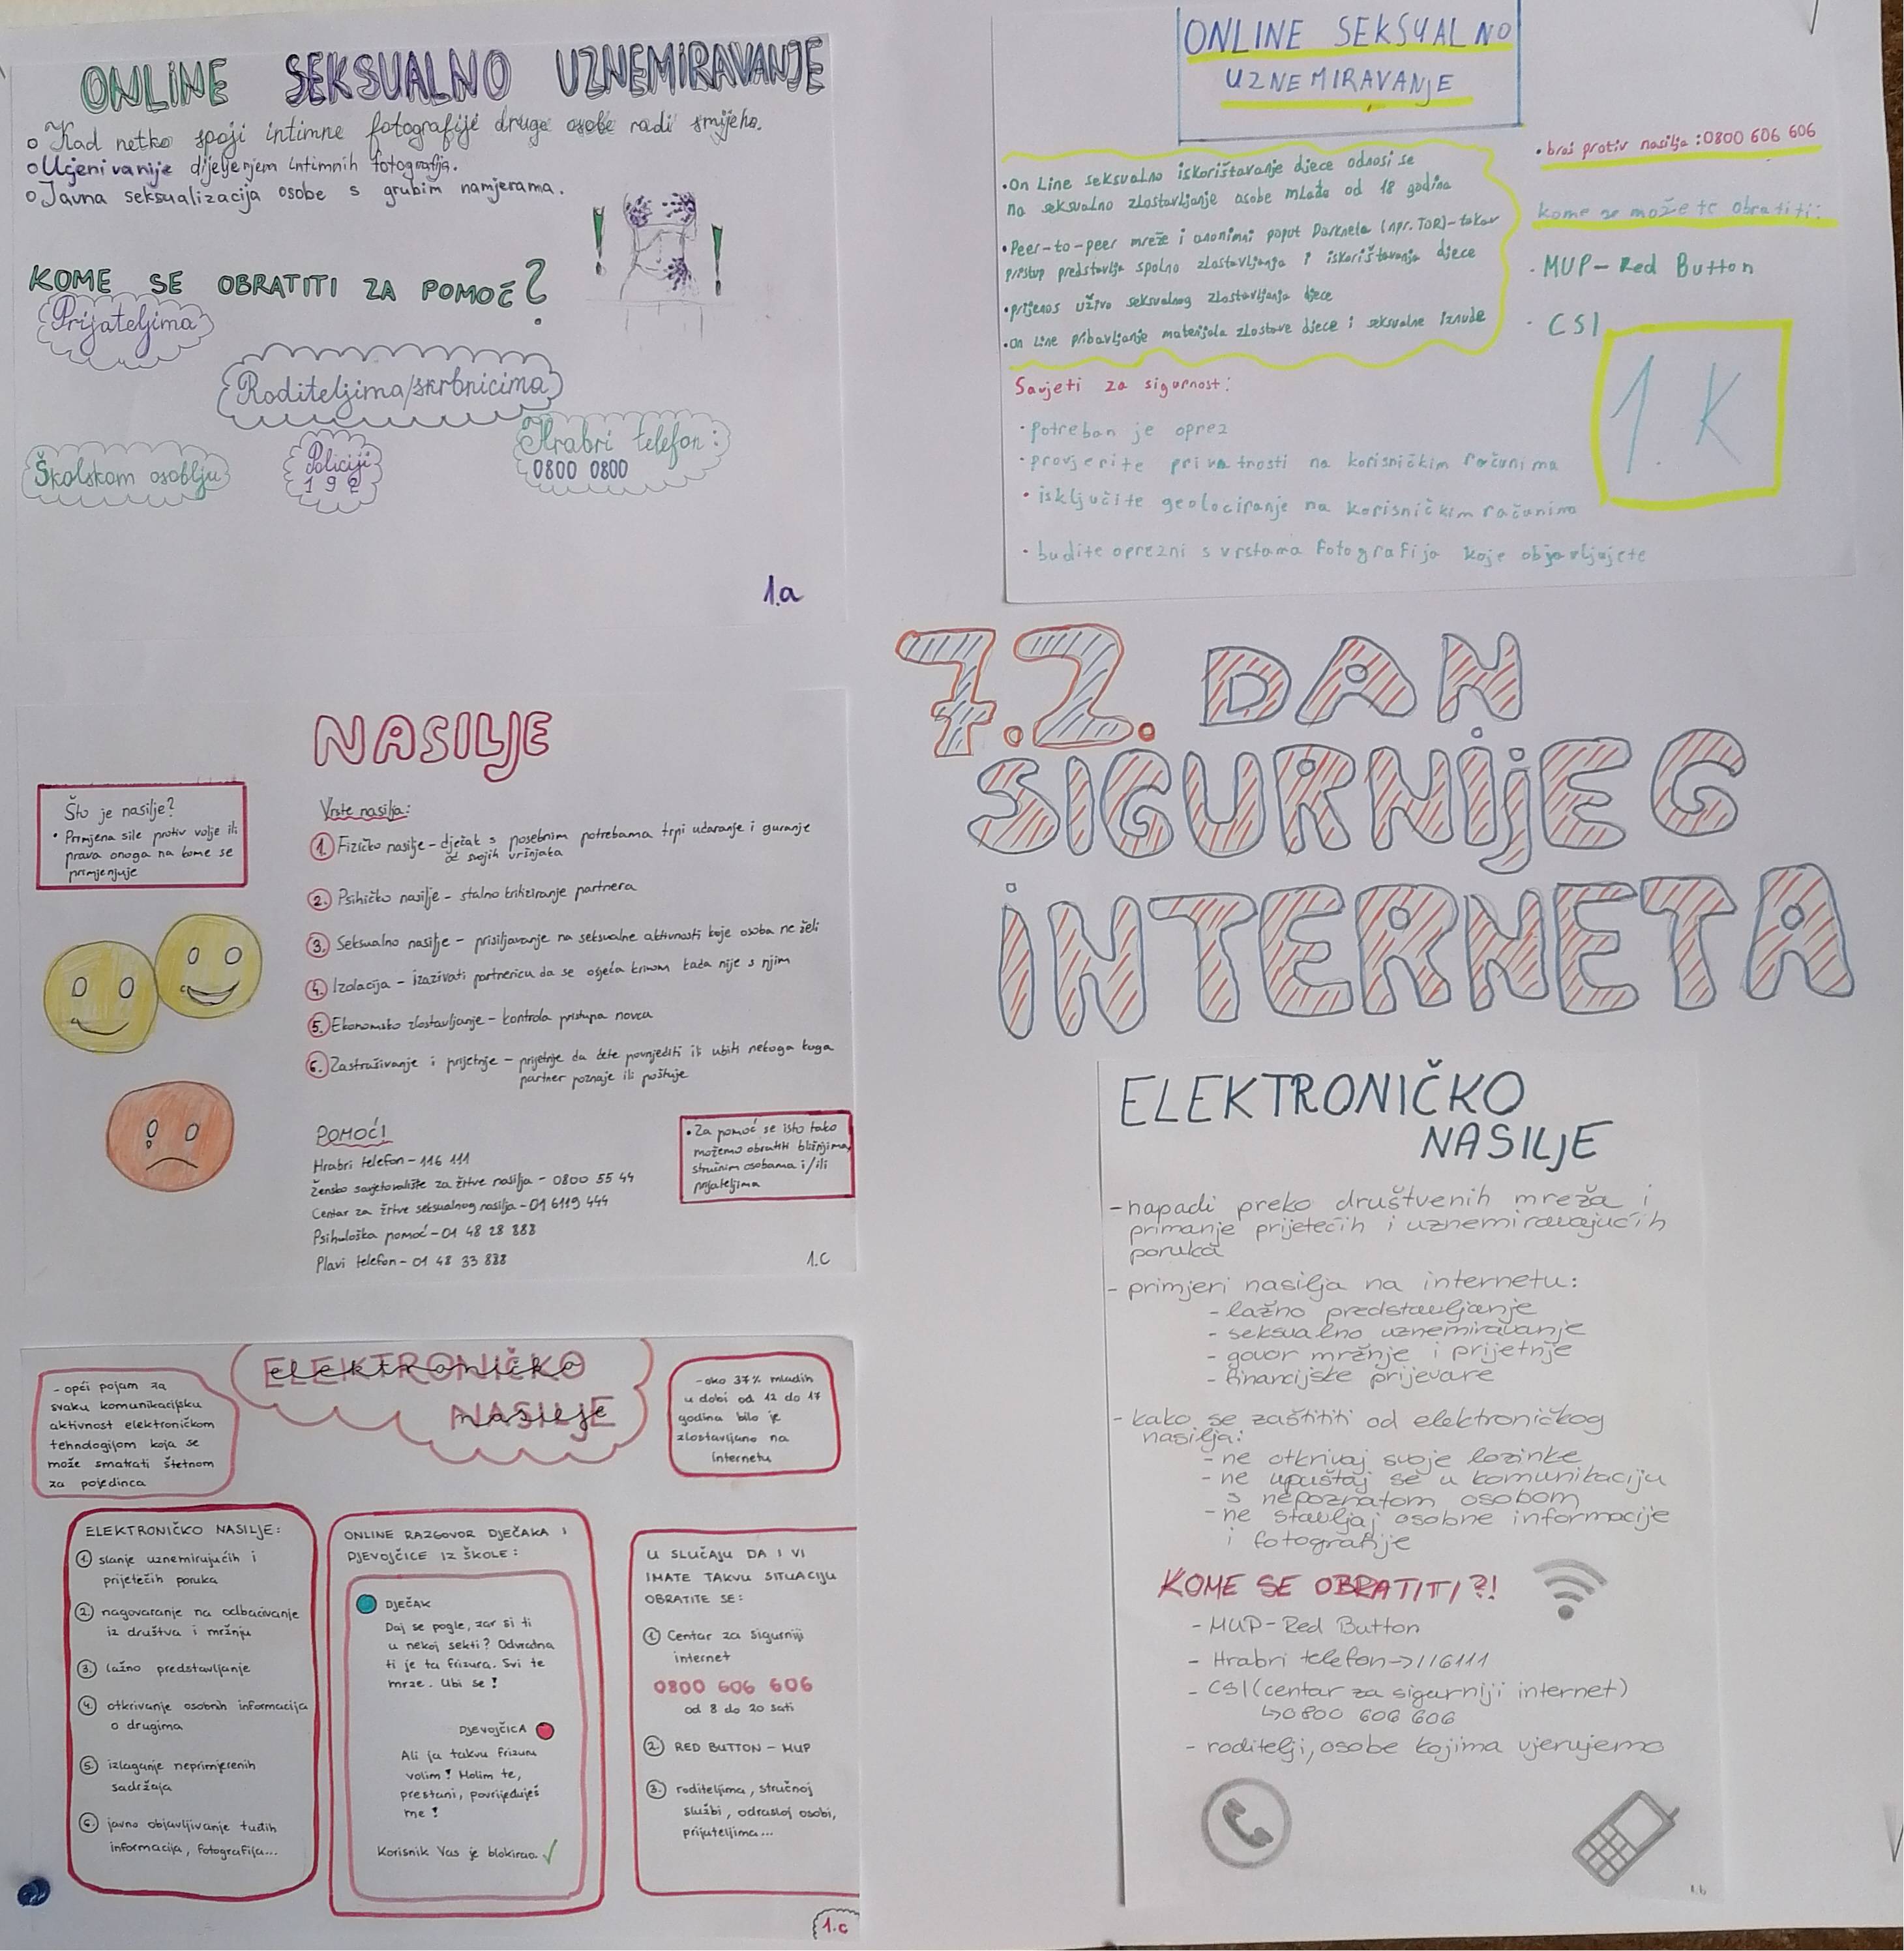 ONLINE SEKSUALNO UZNEMIRAVANJE
Kad netko spoji intimne fotografije druge osobe radi smijeha.
Ucjenivanije dijeljenjem intimnih fotografija.
Javna seksualizacija osobe s grubim namjerama.
KOME SE OBRATITI ZA POMOĆ?
Prijateljima
Roditeljima/skrbnicima
Školskom osoblju
Policiji
192
Hrabri telefon:
0800 0800
1.a
ONLINE SEKSUALNO
UZNEMIRAVANJE
• On Line seksualno iskorištavanje djece odnosi se
na seksualno zlostavljanje osobe mlađe od 18 godina
• Peer-to-peer mreže i anonimni poput Darkneta (npr. TOR)-takav
pristup predstavlja spolno zlostavljanja i iskorištavanja djece
• prijenos uživo seksualnog zlostavljanja djece
• On Line pribavljanje materijala zlostave djece i seksualne iznude
• broj protiv nasilja: 0800 606 606
kome se možete obratiti:
• MUP-Red Button
• CSI
1. K
Savjeti za sigurnost:
• potreban je oprez
• provjerite privatnosti na korisničkim računima
• isključite geolociranje na korisničkim računima
• budite oprezni s vrstama fotografija koje objavljujete
7.2. DAN
SIGURNIJEG
INTERNETA
NASILJE
Što je nasilje?
• Primjena sile protiv volje ili
prava onoga na kome se
primjenjuje
Vrste nasilja:
1. Fizičko nasilje - dječak s posebnim potrebama trpi udaranje i guranje
od svojih vršnjaka
2. Psihičko nasilje - stalno kritiziranje partnera
3. Seksualno nasilje - prisiljavanje na seksualne aktivnosti koje osoba ne želi
4. Izolacija - izazivati partnericu da se osjeća krivom kada nije s njim
5. Ekonomsko zlostavljanje - kontrola pristupa novca
6. Zastrašivanje i prijetnje - prijetnje da ćete povrijediti ili ubiti nekoga koga
partner poznaje ili poštuje
POMOĆ!
Hrabri telefon - 116 111
Žensko savjetovalište za žrtve nasilja - 0800 55 44
Centar za žrtve seksualnog nasilja - 01 6119 444
Psihološka pomoć - 01 48 28 888
Plavi telefon - 01 48 33 888
• Za pomoć se isto tako
možemo obratiti bližnjima,
stručnim osobama i/ili
prijateljima
1.c
elektroničko
ELEKTRONIČKO
nasilje
NASILJE
- opći pojam za
svaku komunikacijsku
aktivnost elektroničkom
tehnologijom koja se
može smatrati štetnom
za pojedinca
- oko 37% mladih
u dobi od 12 do 17
godina bilo je
zlostavljano na
internetu
ELEKTRONIČKO NASILJE:
1. slanje uznemirujućih i
prijetećih poruka
2. nagovaranje na odbacivanje
iz društva i mržnju
3. lažno predstavljanje
4. otkrivanje osobnih informacija
o drugima
5. izlaganje neprimjerenih
sadržaja
6. javno objavljivanje tuđih
informacija, fotografija...
ONLINE RAZGOVOR DJEČAKA I
DJEVOJČICE IZ ŠKOLE:
DJEČAK
Daj se pogle, zar si ti
u nekoj sekti? Odvratna
ti je ta frizura. Svi te
mrze. Ubi se!
DJEVOJČICA
Ali ja takvu frizuru
volim! Molim te,
prestani, povrijeđuješ
me!
Korisnik Vas je blokirao. ✓
U SLUČAJU DA I VI
IMATE TAKVU SITUACIJU
OBRATITE SE:
1. Centar za sigurniji
internet
0800 606 606
od 8 do 20 sati
2. RED BUTTON - MUP
3. roditeljima, stručnoj
službi, odrasloj osobi,
prijateljima...
1.c
ELEKTRONIČKO
NASILJE
- napadi preko društvenih mreža i
primanje prijetećih i uznemiravajućih
poruka
- primjeri nasilja na internetu:
- lažno predstavljanje
- seksualno uznemiravanje
- govor mržnje i prijetnje
- financijske prijevare
- kako se zaštititi od elektroničkog
nasilja:
- ne otkrivaj svoje lozinke
- ne upuštaj se u komunikaciju
s nepoznatom osobom
- ne stavljaj osobne informacije
i fotografije
KOME SE OBRATITI?!
- MUP-Red Button
- Hrabri telefon→116111
- CSI (centar za sigurniji internet)
↳0800 606 606
- roditelji, osobe kojima vjerujemo
1.b